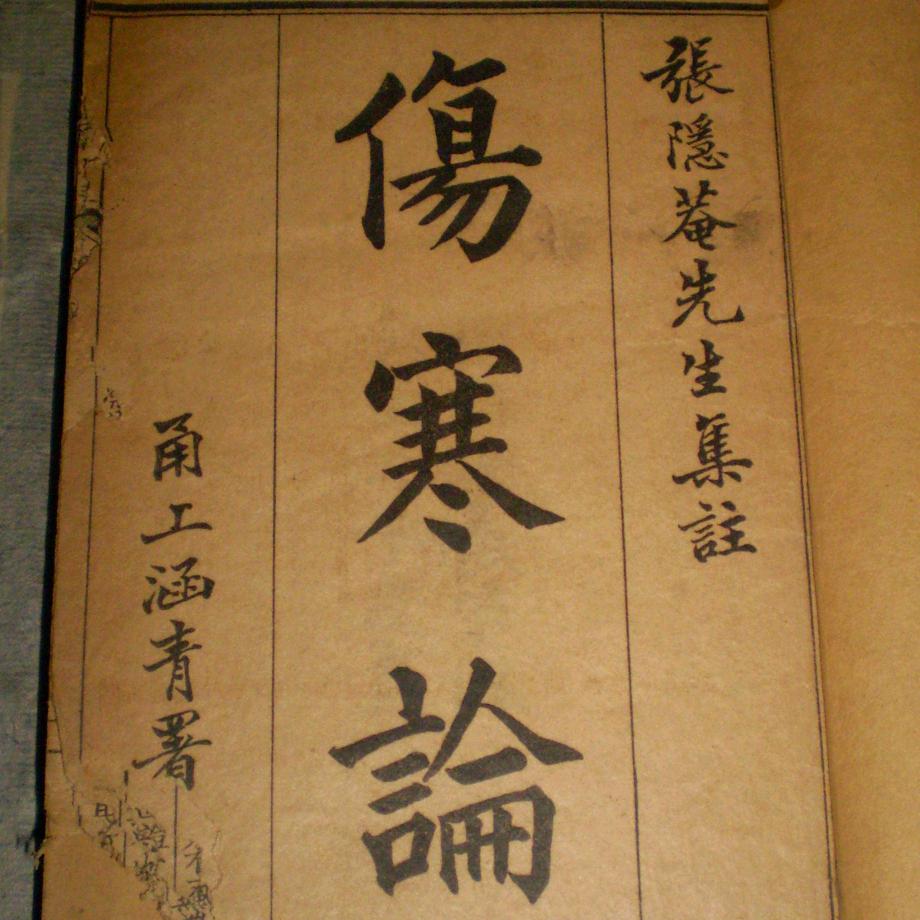 張隱菴先生集註
傷寒論
甬工涵青署